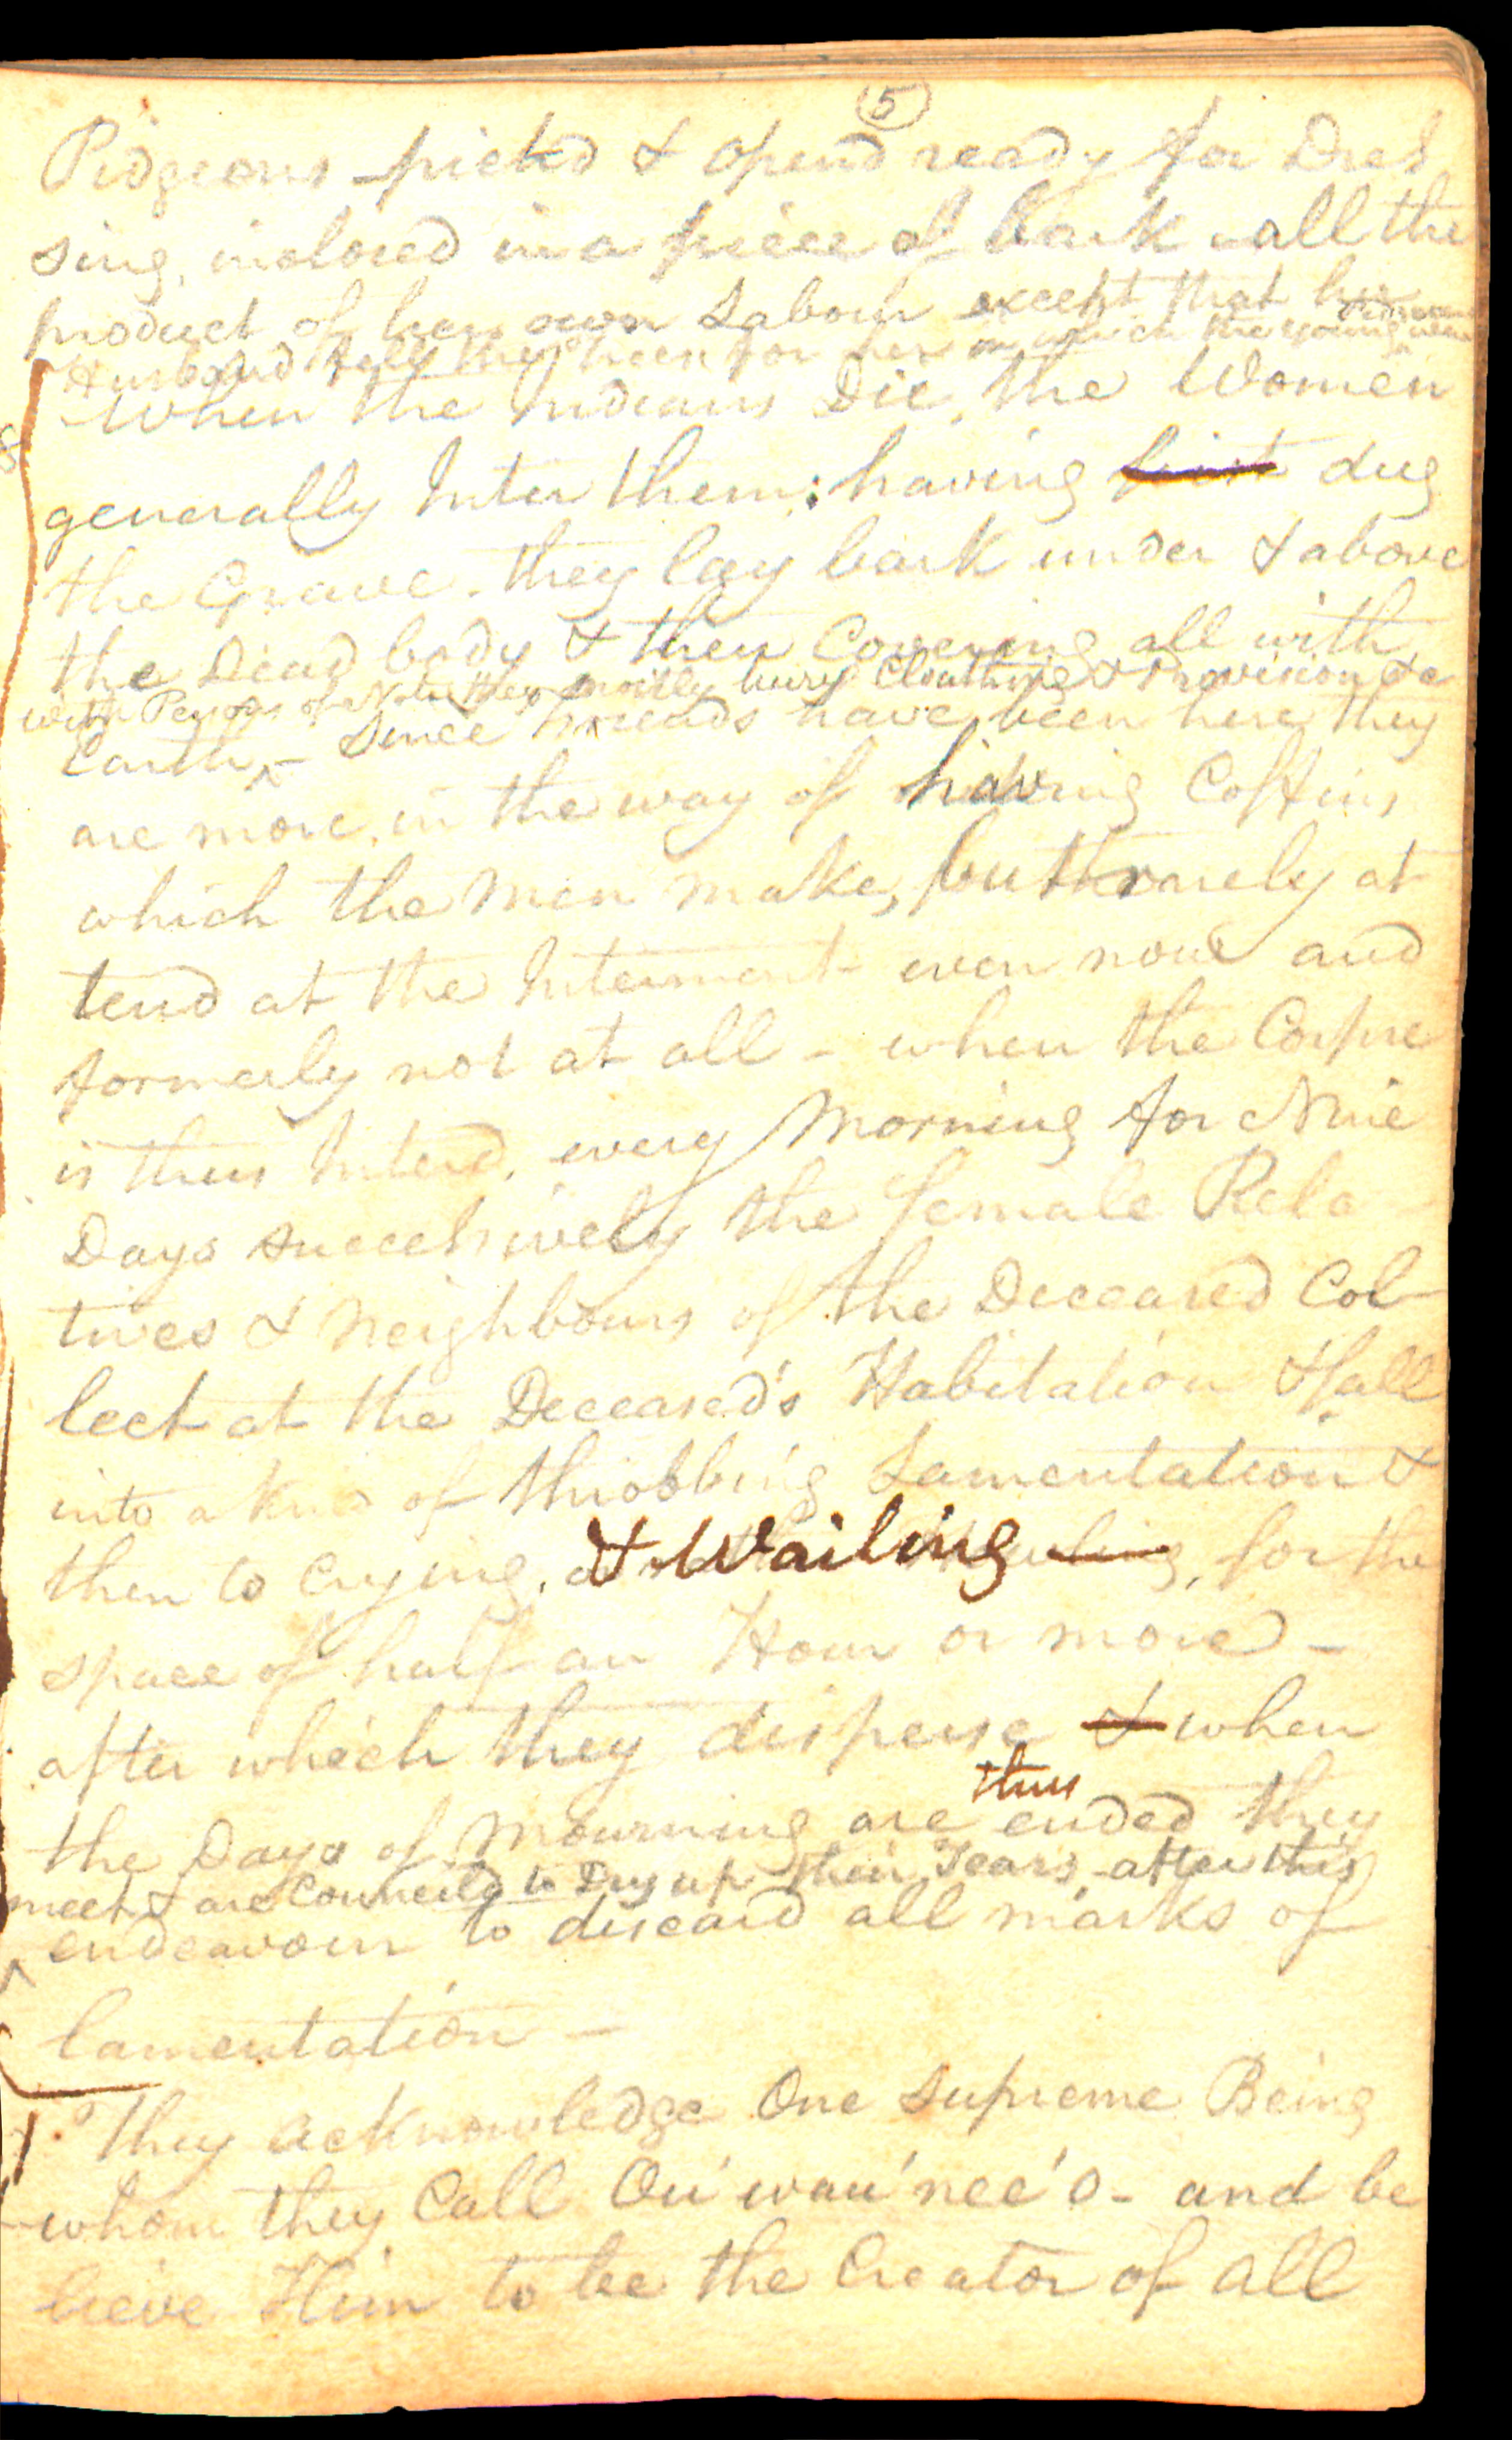 5
Pidgeons pick'd & opend ready for Dres
sing, inclosed in a piece of bark - all the
product of her own Labour except that her
Husband fell the trees for her on which the young Pidgeons were
When the Indians Die, the Women
generally Inter them: having first dug
the Grave. they lay bark under & above
the Dead body & then Covering all with
with Persons of Note they mostly bury Cloathing & Provision &c
Earth - Since Friends have been here they
are more in the way of having Coffins
which the Men make, but rarely at
tend at the Interment even now and
formerly not at all - when the Corpse
is thus Interd, every Morning for Nine
Days successively the female Rela
tives & Neighbours of the Deceased Col
lect at the Deceased's Habitation & fall
into a kind of throbbing Lamentation &
then to Crying, & Wailing, for the
space of half an Hour or more -
after which they disperse & when
thus
the Days of Mourning are ended they
meet & are Councild to Dry up their Tears, after this
endeavour to discard all marks of
lamentation -
They acknowledge One Supreme Being
whom they Call Ou'wau'nee'o - and be
lieve Him to be the Creator of all